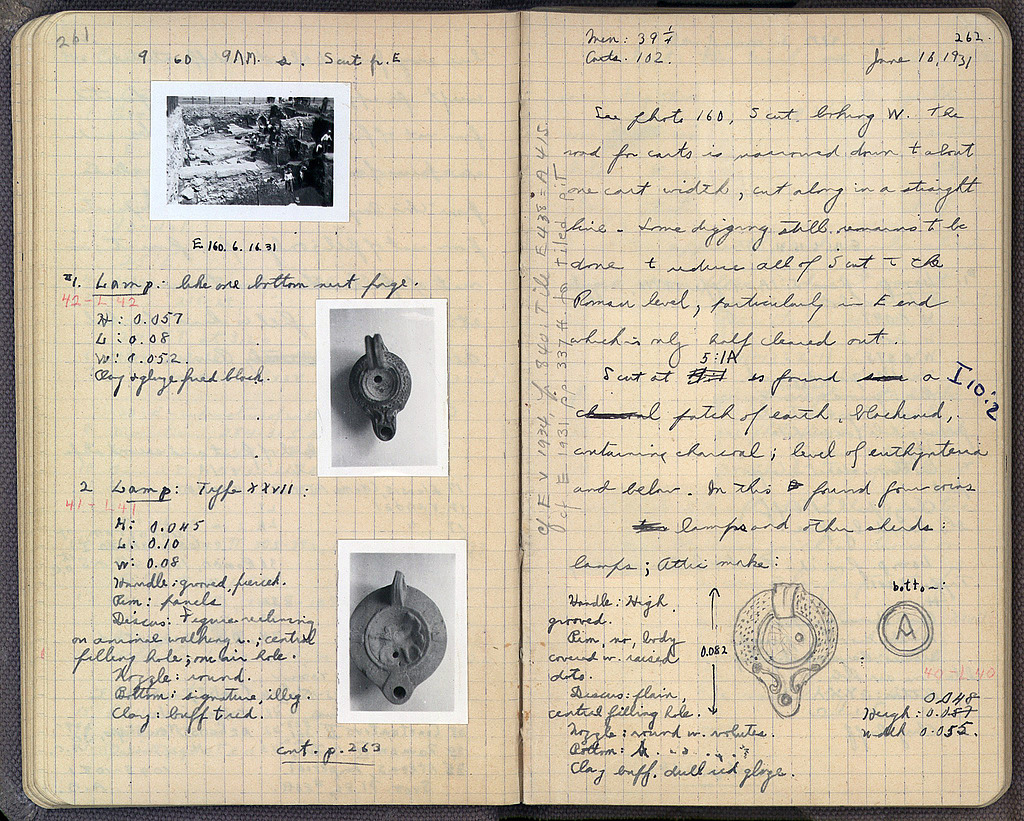 261
9 60 9AM. S cut fr. E
E 160. 6. 16.31
#1. Lamp: like one bottom next page.
42-L 42
H: 0.057
L: 0.08
W: 0.052.
Clay & glaze fired black.
2 Lamp: Type XXVII:
41-L 41
H: 0.045
L: 0.10
W: 0.08
Handle: grooved, pierced.
Rim: panels
Discus: Figure reclining
on animal walking r.; central
filling hole; one air hole.
Nozzle: round.
Bottom: signature, illeg.
Clay: buff to red.
cont. p. 263
Men: 39 1/4
Carts. 102.
262.
June 16, 1931
See photo 160, S cut, looking W. The
road for carts is narrowed down to about
one cart width, cut along in a straight
line. Some digging still remains to be
done to reduce all of S cut to the
Roman level, particularly in E end
which is only half cleared out.
5:1A
S cut at is found a
I 10:2
patch of earth, blackened,
containing charcoal; level of euthynteria
and below. In this found four coins
lamps and other sherds:
lamps; Attic make:
cf E V 1934, p. 840: Tile E 438 = A 415
cf E 1931 pp 337 ff. for tiled pit
Handle: High.
grooved.
Rim, no, body
covered w. raised
dots.
Discus: plain,
central filling hole.
Nozzle: round w. volutes.
Bottom: A
Clay buff. dull red glaze.
0.082
bottom:
A
40-L 40
0.048
Heigh: 0.087
Width 0.055.